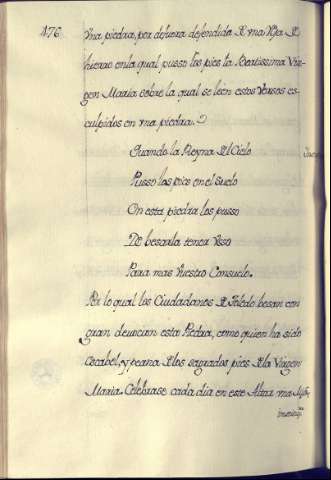 176
Vna piedra, por defuera defendida de vna Reja de
hierro en la qual pusso los pies la Beatissima Vir-
gen Maria sobre la qual se leen estos Versos es-
culpidos en vna piedra.
Quando la Reyna del Cielo
Pusso los pies en el suelo
En esta piedra los pusso
De besarla tened Vsso
Para mas Vuestro Consuelo.
Por lo qual los Ciudadanos de Toledo besan con
gran devocion esta Piedra, como quien ha sido
Escabel, y peana de los sagrados pies de la Virgen
Maria. Celebrase cada dia en este Altar vna